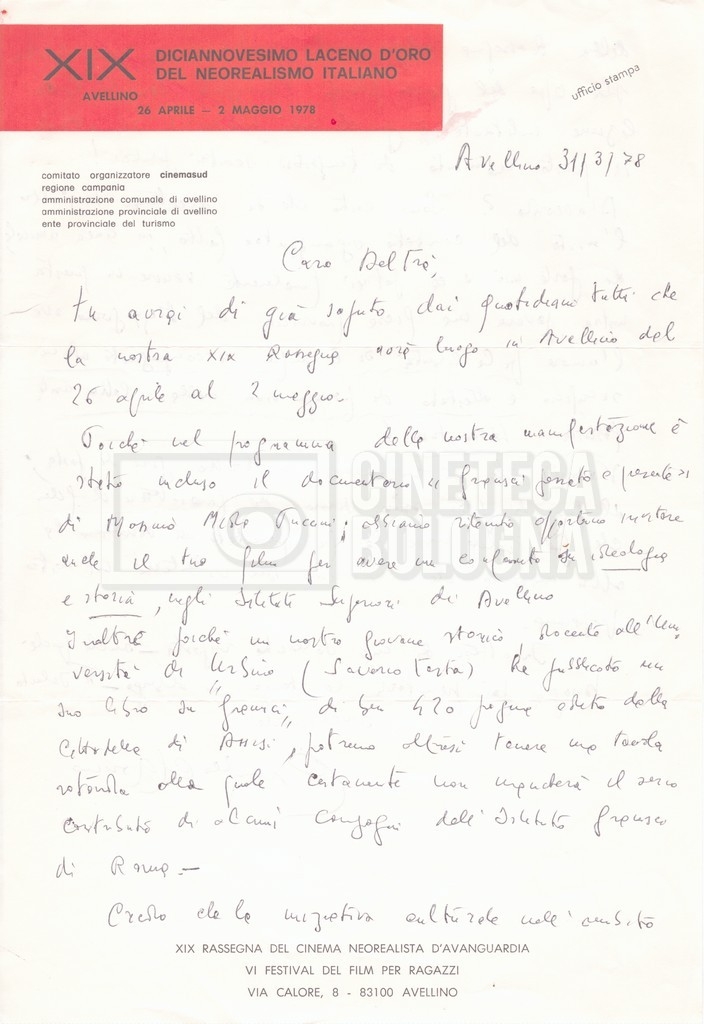 XIX DICIANNOVESIMO LACENO D'ORO
DEL NEOREALISMO ITALIANO
AVELLINO
26 APRILE — 2 MAGGIO 1978
ufficio stampa
Avellino 31/3/78
comitato organizzatore cinemasud
regione campania
amministrazione comunale di avellino
amministrazione provinciale di avellino
ente provinciale del turismo
Caro Del Frà,
tu avrai di già saputo dai quotidiani tutti che
la nostra XIX Rassegna avrà luogo in Avellino dal
26 aprile al 2 maggio.
Poiché nel programma della nostra manifestazione è
stato incluso il documentario "Gramsci passato e presente"
di Massimo Mida Puccini, abbiamo ritenuto opportuno inserire
anche il tuo film per avere un confronto su ideologia
e storia, negli Istituti Superiori di Avellino
Inoltre poiché un nostro giovane storico, docente all'Uni
versità di Urbino (Saverio Festa) ha pubblicato un
suo libro su "Gramsci" di ben 420 pagine edito dalla
Cittadella di Assisi, potremo altresì tenere una tavola
rotonda alla quale certamente non mancherà il serio
contributo di alcuni compagni dell'Istituto Gramsci
di Roma. —
Credo che la iniziativa culturale nell'ambito
CINETECA
BOLOGNA
XIX RASSEGNA DEL CINEMA NEOREALISTA D'AVANGUARDIA
VI FESTIVAL DEL FILM PER RAGAZZI
VIA CALORE, 8 - 83100 AVELLINO